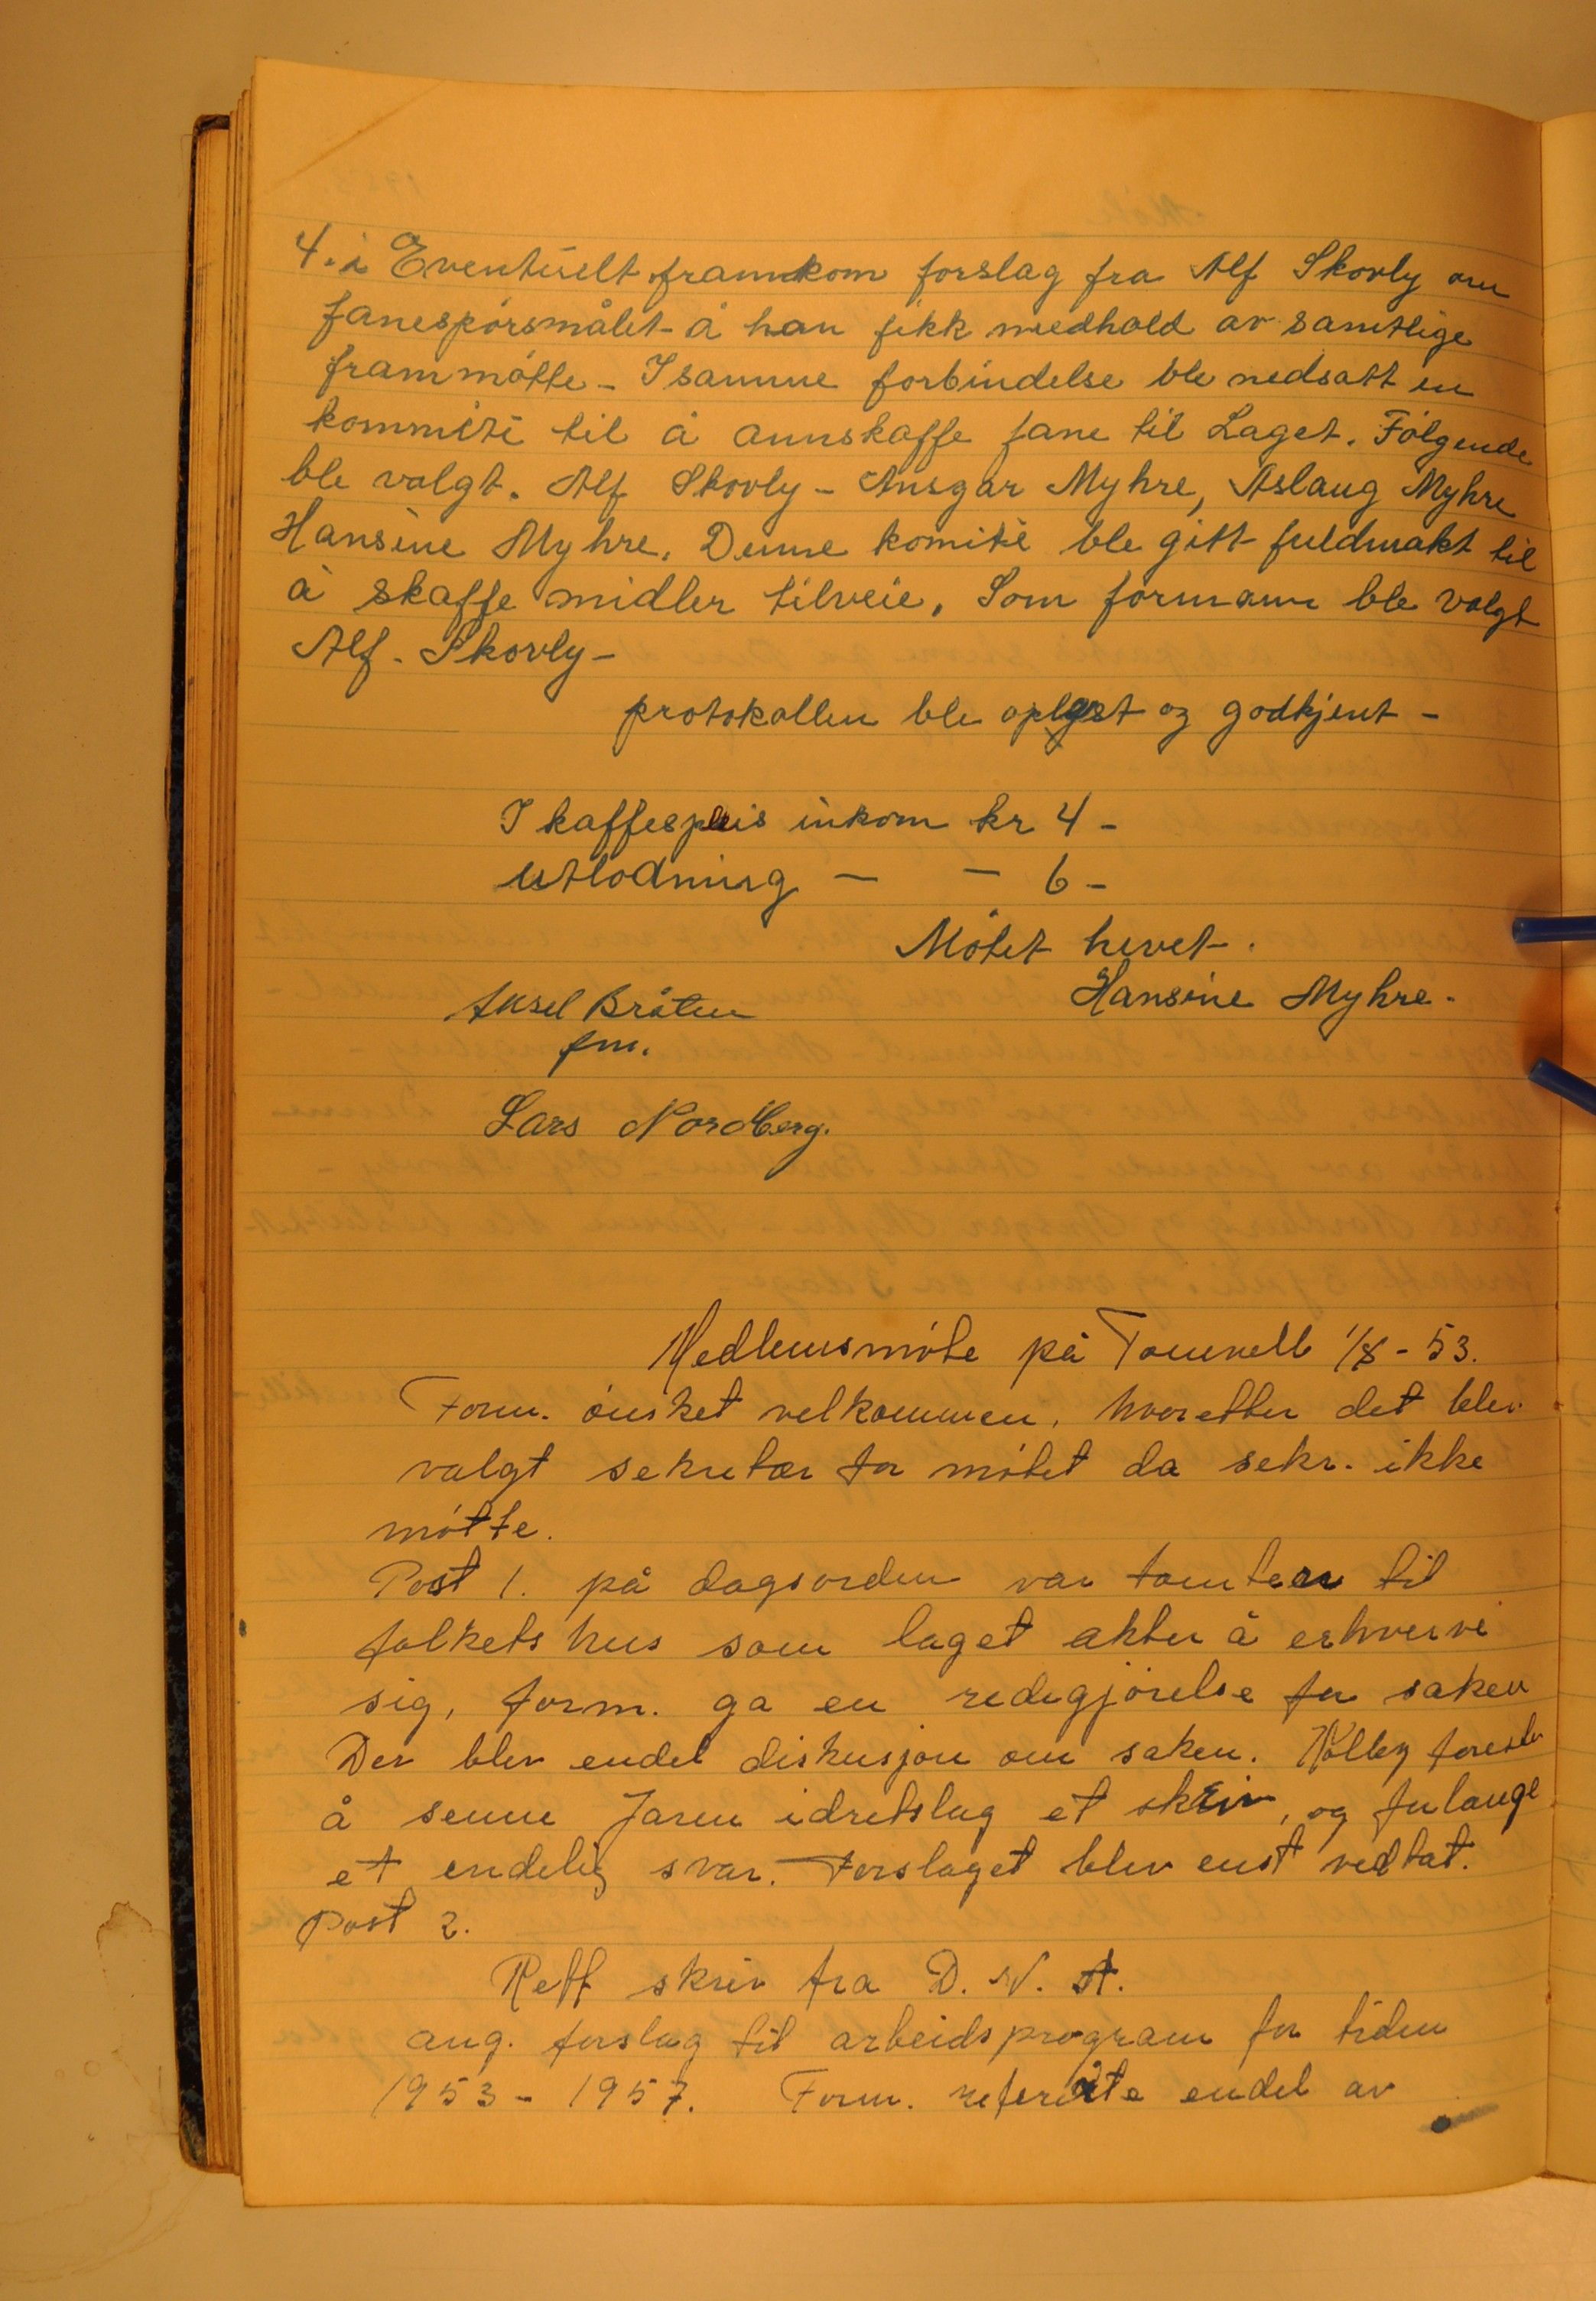 4. i Eventuelt framkom forslag fra Alf Skovly om
fanespørsmålet å han fikk medhold av samtlige
frammøtte - I samme forbindelse ble nedsatt en
kommite til å annskaffe fane til Laget. Følgende
ble valgt. Alf Skovly - Ansgar Myhre, Aslaug Myhre
Hansine Myhre. Denne komite ble gitt fuldmakt til
å skaffe midler tilveie. Som formann ble valgt
Alf. Skovly -
protokollen ble oplest og godkjent -
I kaffespleis inkom kr 4 -
utlodning — — 6 -
Møtet hevet.
Aksel Bråten Hansine Myhre.
fm.
Lars Nordberg.
Medlemsmøte på 1/8 - 53.
Form. ønsket velkommen, hvoretter det blev
valgt sekretær for møtet da sekr. ikke
møtte.
Post 1. på dagsorden var tomten til
folkets hus som laget akter å erhverve
sig, form. ga en redegjørelse for saken
Der blev endel diskusjon om saken. foreslo
å senne Jaren idretslag et skriv, og forlange
et endelig svar. Forslaget blev enst vedtat.
Post 2.
Reff skriv fra D. N. A.
ang. forslag til arbeidsprogram for tiden
1953 - 1957. Form. refererte endel av